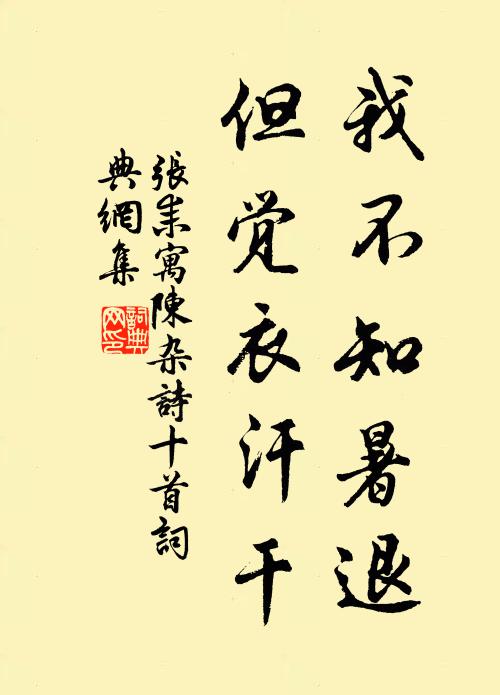 我不知暑退
但觉衣汗干
張耒寓陳杂詩十首詞
典網集
詞典网印